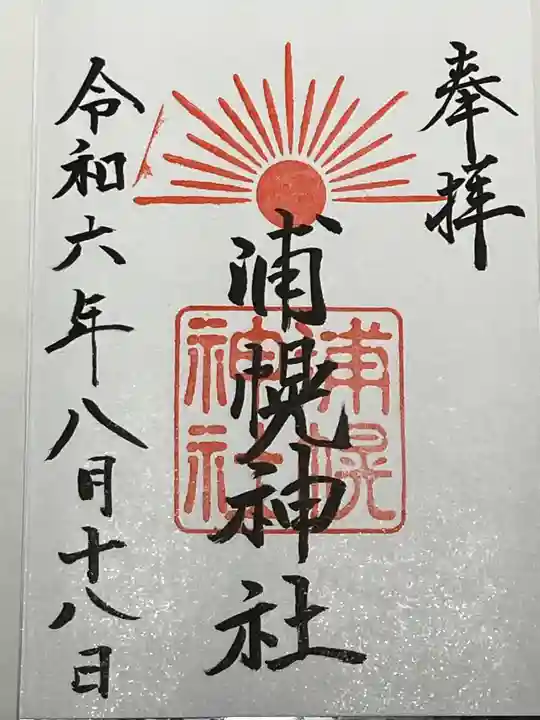 奉拝
浦幌神社
浦幌
神社
令和六年八月十八日